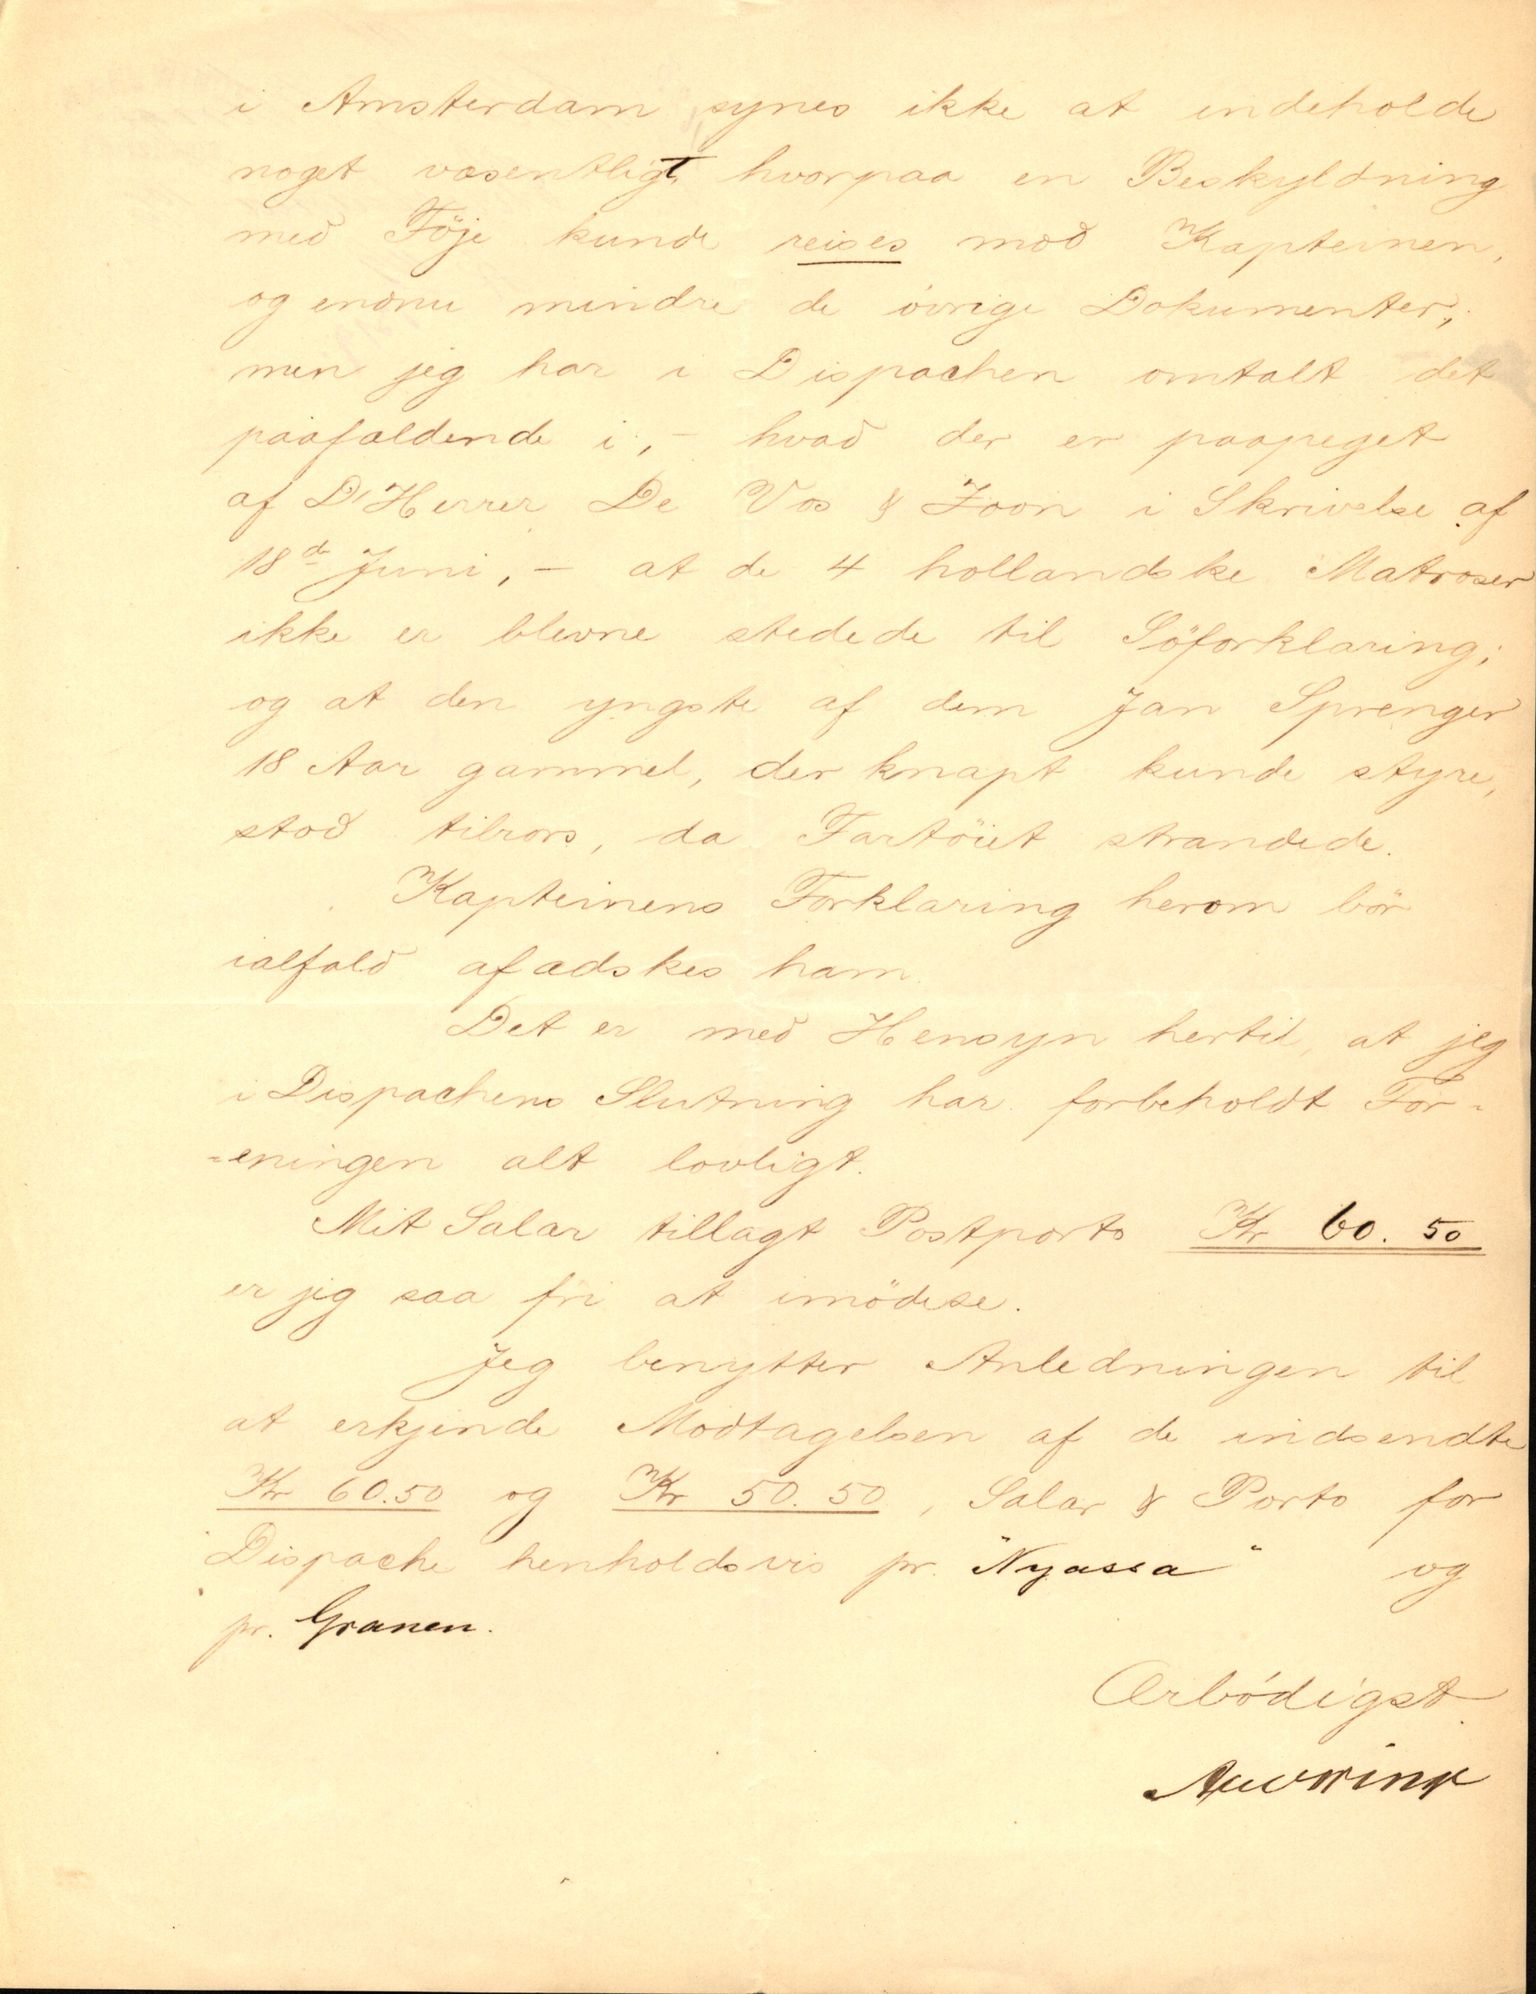 i Amsterdam synes ikke at indeholde
noget væsentligt, hvorpaa en Beskyldning
med Föje kunde reises mod Kapteinen,
og endnu mindre de övrige Dokumenter;
men jeg har i Dispachen omtalt det
paafaldende i, – hvad der er paapeget
af D'Herrer De Vos & Zoon i Skrivelse af
18de Juni, – at de 4 hollandske Matroser
ikke er blevne stedede til Söforklaring;
og at den yngste af dem Jan Sprenger
18 Aar gammel, der knapt kunde styre,
stod tilrors, da Fartöiet strandede.
Kapteinens Forklaring herom bör
ialfald afædskes ham.
Det er med Hensyn hertil, at jeg
i Dispachens Slutning har forbeholdt For-
-eningen alt lovligt.
Mit Salær tillagt Postporto Kr 60. 50
er jeg saa fri at imödese.
Jeg benytter Anledningen til
at erkjende Modtagelsen af de indsendte
Kr 60.50 og Kr 50.50, Salær & Porto for
Dispache henholdsvis pr. "Nyassa" og
pr. Granen.
Ærbödigst